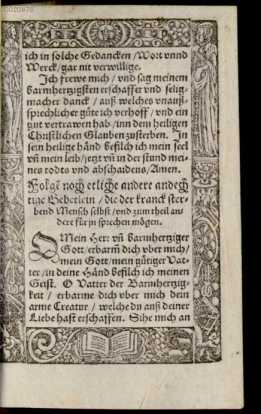 ich in solche Gedancken / Wort vnnd
Werck / gar nit verwillige.
Ich frewe mich / vnd sag meinem
barmhertzigsten erschaffer vnd selig-
macher danck / auß welches vnauß-
sprechlicher güte ich verhoff / vnd ein
gut vertrawen hab / inn dem heiligen
Christlichen Glauben zusterben. In
sein heilige händ befilch ich mein seel
vñ mein leib / jetzt vñ in der stund mei-
nes todts vnd abschaidens / Amen.
Folgẽ noch etliche andere andech
tige Gebetlein / die der kranck ster-
bend Mensch selbst / vnd zum theil an-
dere für in sprechen mögen.
O Mein Herr vñ barmhertziger
Gott / erbarm̃ dich vber mich /
mein Gott / mein gütiger Vat-
ter / in deine Händ befilch ich meinen
Geist. O Vatter der Barmhertzig-
keit / erbarme dich vber mich dein
arme Creatur / welche du auß deiner
Liebe hast erschaffen. Sihe mich an